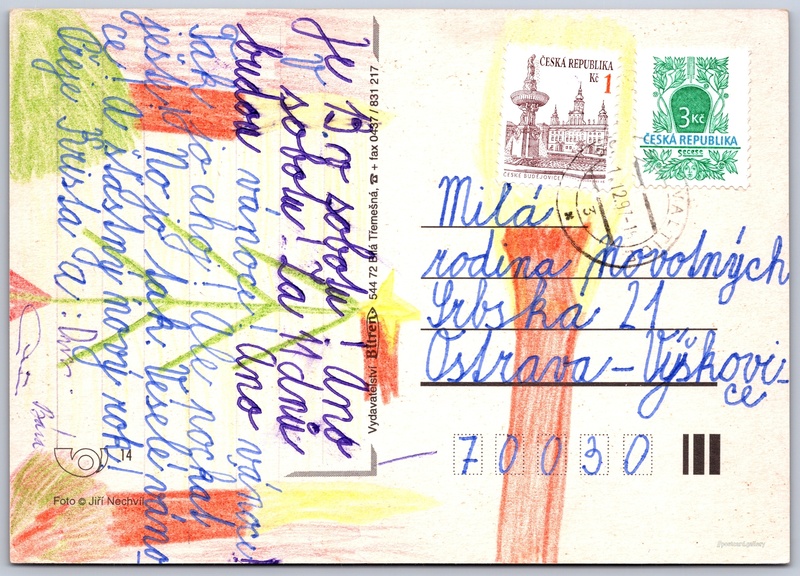 Je 13. v sobotu! Ano
v sobotu! Za 11 dnů
budou vánoce! Ano vánoce!
Tak jo ahoj! Ale
ještě No jo tak. Veselé váno-
ce! A šťastný nový rok!
Přeje
a:
Vydavatelství BitTren 544 72 Bílá Třemešná, ☎ + fax 0437 / 831 217
14
Foto © Jiří Nechvíl
ČESKÁ REPUBLIKA
Kč 1
ČESKÉ BUDĚJOVICE
3 Kč
ČESKÁ REPUBLIKA
secese
Milá
rodina Novotných
Srbská 21
Ostrava-Výškovi-
ce
70030